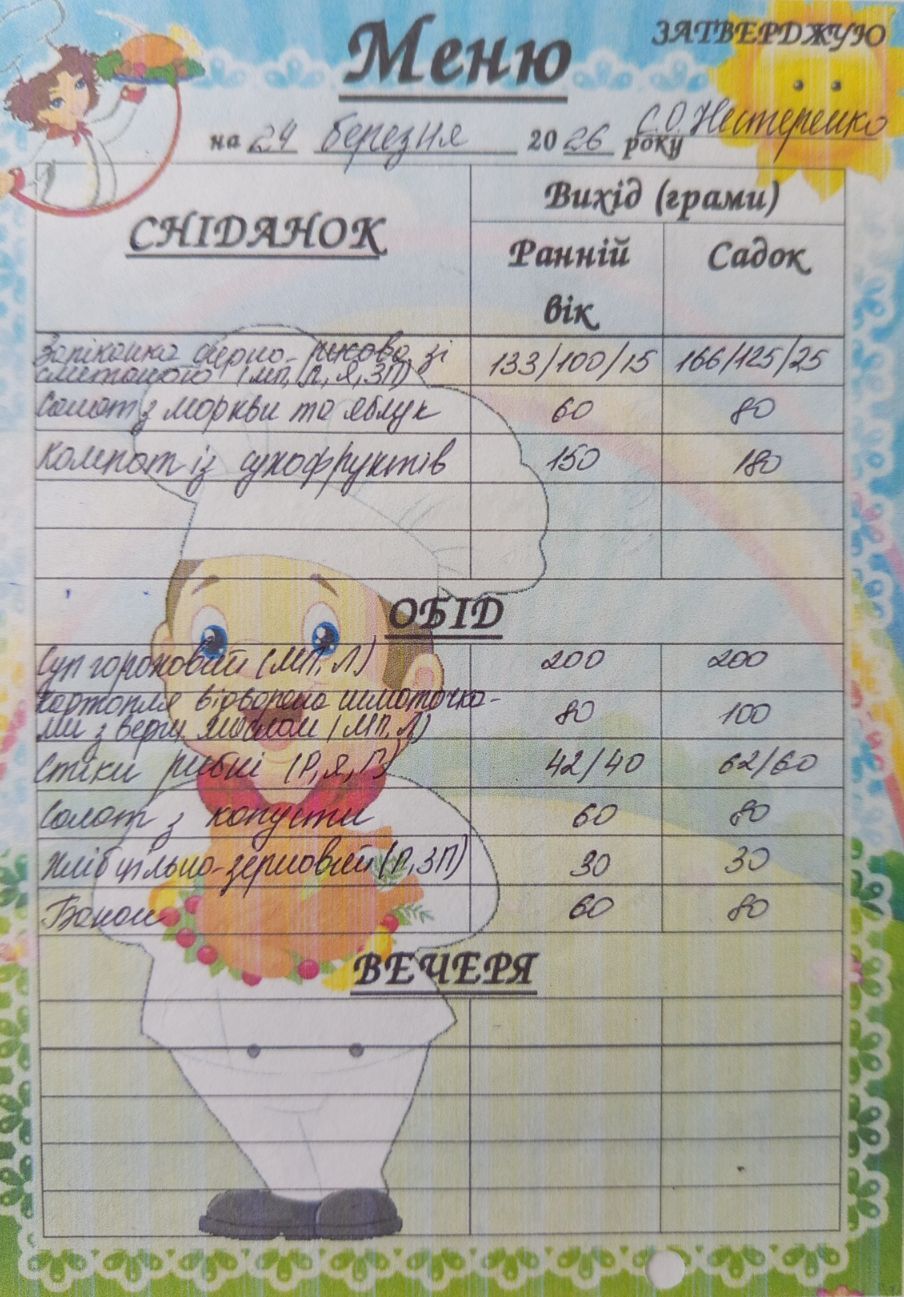 Меню
ЗАТВЕРДЖУЮ
на 24 березня 2026 року С.О. Нестеренко
СНІДАНОК
Вихід (грами)
Ранній вік
Садок
Запіканка сирно-рисова зі
сметаною (МП, Л, Я, ЗП) 133/100/15 166/125/25
Салат з моркви та яблук 60 80
Компот із сухофруктів 150 180
ОБІД
Суп гороховий (МП, Л) 200 200
Картопля відварена шматочка-
ми з верш. маслом (МП, Л) 80 100
Стіки рибні (Р, Я, Г) 42/40 62/60
Салат з капусти 60 80
Хліб цільно-зерновий (Р, ЗП) 30 30
Банан 60 80
ВЕЧЕРЯ